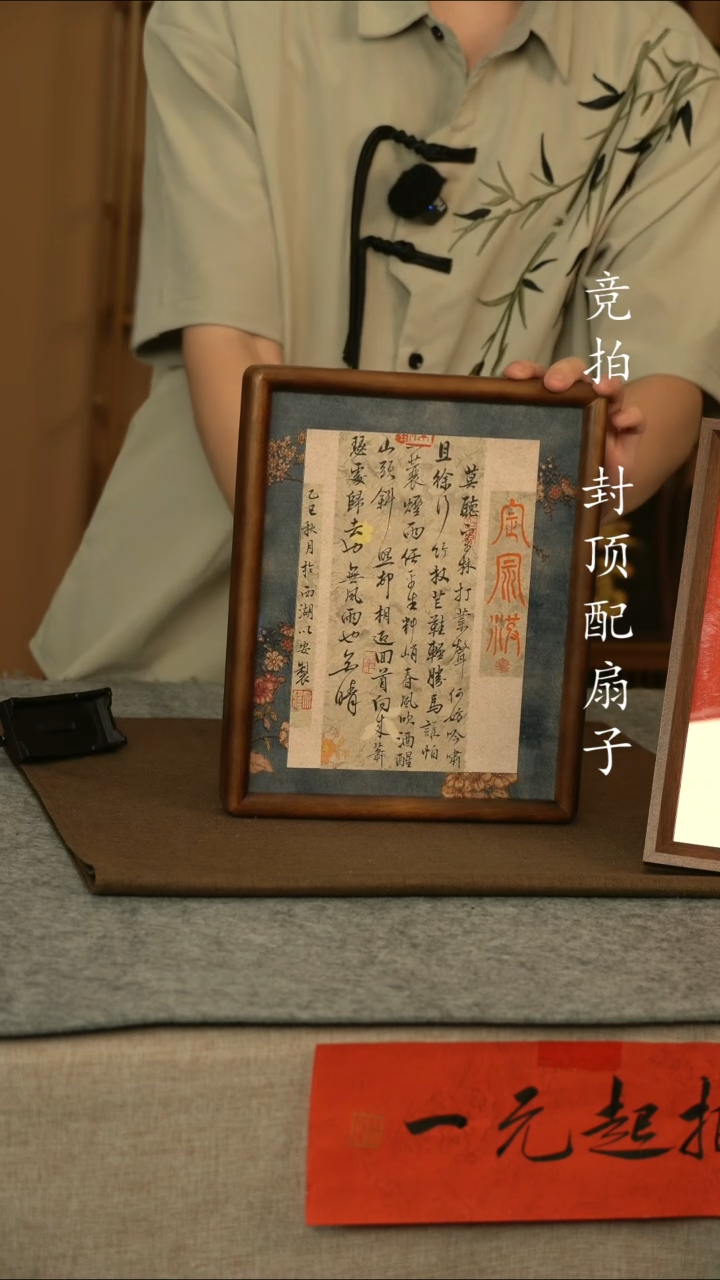 竞拍 封顶配扇子
定風波
莫聽穿林打葉聲何妨吟嘯
且徐行竹杖芒鞋輕勝馬誰怕
一蓑煙雨任平生料峭春風吹酒醒
山頭斜照却相迎回首向來蕭
瑟處歸去也無風雨也無晴
乙巳秋月於西湖以安製
一元起拍